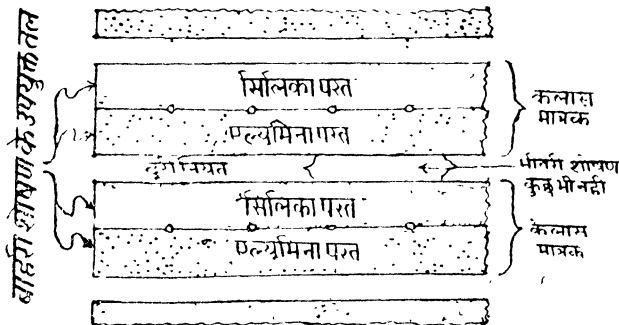 बाहरी शोषण के उपयुक्त तल
सिलिका परत
एल्यूमिना परत
कलास
मात्रक
दूरी नियत
भीतरी शोषण
कुछ भी नहीं
सिलिका परत
एल्यूमिना परत
केलास
मात्रक